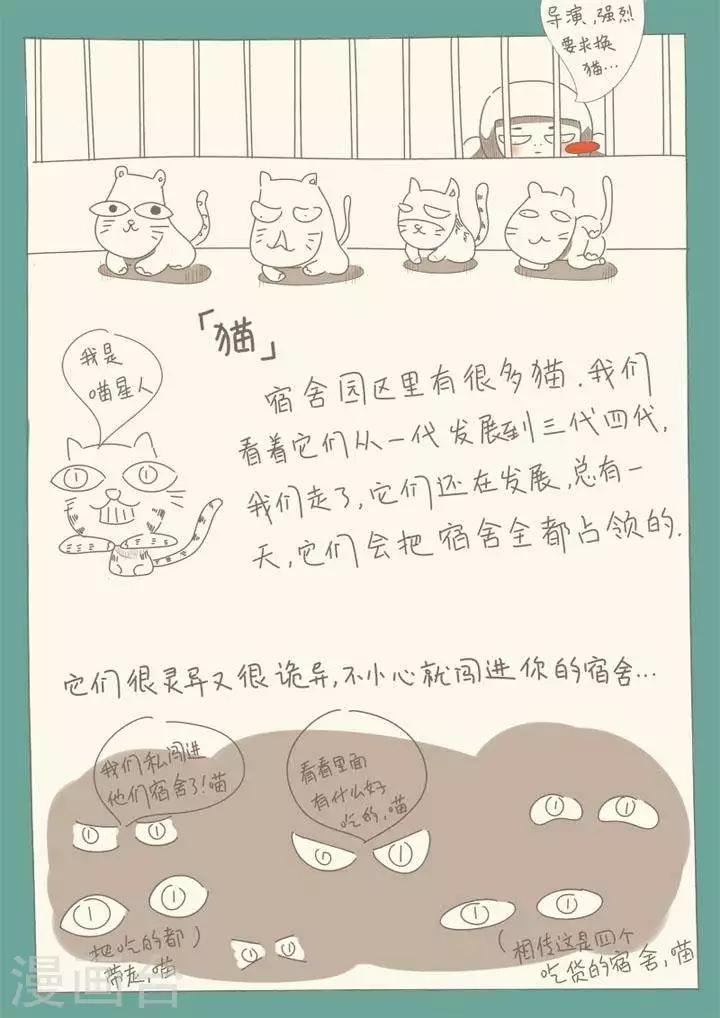 导演,强烈
要求换
猫...
「猫」
我是
喵星人
宿舍园区里有很多猫.我们
看着它们从一代发展到三代四代,
我们走了,它们还在发展,总有一
天,它们会把宿舍全都占领的.
它们很灵异又很诡异,不小心就闯进你的宿舍...
我们私闯进
他们宿舍了!喵
看看里面
有什么好
吃的,喵
把吃的都)
带走,喵
(相传这是四个
吃货的宿舍,喵
漫画台